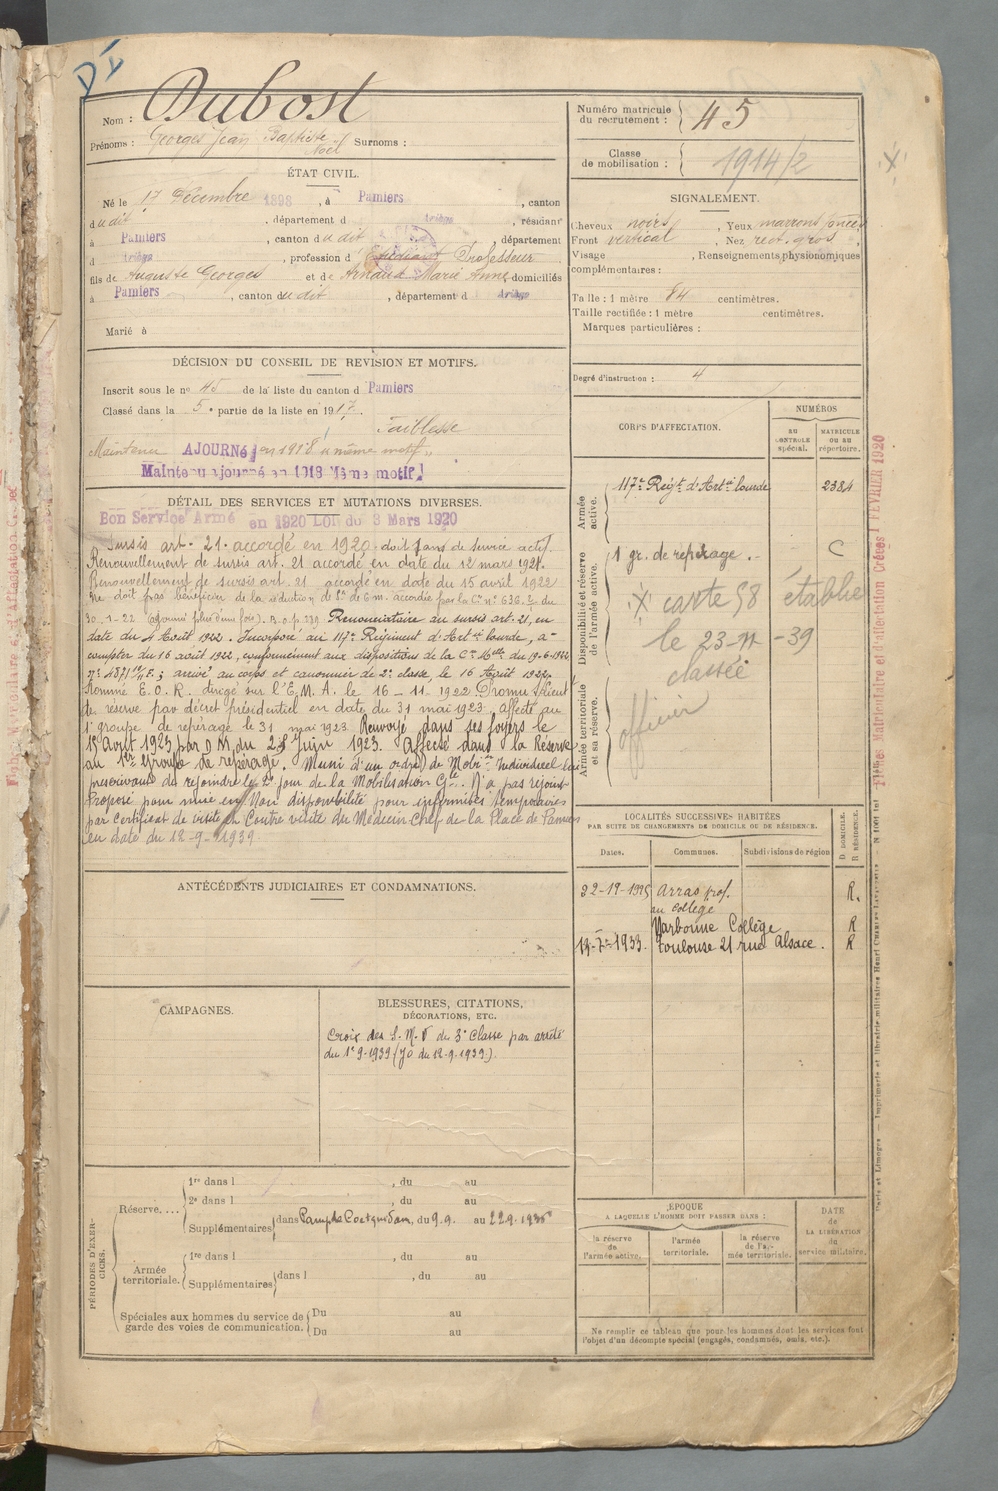 Nom : Dubost
Prénoms : Georges Jean Baptiste Noël Surnoms :
Numéro matricule du recrutement : 45
Classe de mobilisation : 1914/2
ÉTAT CIVIL.
Né le 17 Décembre 1898, à Pamiers, canton
dudit, département d Ariège, résidant
à Pamiers, canton dudit, département
d Ariège, profession d Étudiant Professeur
fils de Auguste Georges et de Arnaud Marie Anne domiciliés
à Pamiers, canton dudit, département d Ariège
Marié à
SIGNALEMENT.
Cheveux noirs, Yeux marrons foncés
Front vertical, Nez rect. gros,
Visage , Renseignements physionomiques
complémentaires :
Taille : 1 mètre 84 centimètres.
Taille rectifiée : 1 mètre centimètres.
Marques particulières :
Degré d'instruction : 4
DÉCISION DU CONSEIL DE REVISION ET MOTIFS.
Inscrit sous le no 45 de la liste du canton d Pamiers
Classé dans la 5e partie de la liste en 1917.
Faiblesse
Maintenu AJOURNÉ en 1918 " même motif "
Maintenu ajourné en 1918 Même motif
DÉTAIL DES SERVICES ET MUTATIONS DIVERSES.
Bon Service Armé en 1920 LOI du 3 Mars 1920
Sursis art. 21. accordé en 1920. doit 1 ans de service actif.
Renouvellement de sursis art. 21 accordé en date du 12 mars 1921.
Renouvellement de sursis art. 21 accordé en date du 15 avril 1922
Ne doit pas bénéficier de la réduction de 6 m. accordée par la Cre n° 636 du
30-1-22 (ajourné plus d'une fois). B.O.p. 239 Renonciataire au sursis art. 21, en
date du 4 Août 1922. Incorporé au 117e Régiment d'Artie lourde, à
compter du 16 août 1922, conformément aux dispositions de la Cre Mlle du 19-6-1922
n° 4871 ; arrivé au corps et canonnier de 2e classe le 16 Août 1922.
Nommé E.O.R. dirigé sur l'E.M.A. le 16-11-1922. Promu S/lieut
de réserve par décret présidentiel en date du 31 mai 1923, affecté au
1er groupe de repérage le 31 mai 1923. Renvoyé dans ses foyers le
15 Août 1923 par D.M. du 25 Juin 1923. Affecté dans la Réserve
au 1er Groupe de repérage. Muni d'un ordre de Mobon Individuel lui
prescrivant de rejoindre le 2e jour de la Mobilisation Gle. N'a pas rejoint
Proposé pour mise en Non disponibilité pour infirmités temporaires
par certificat de visite et Contre visite du Médecin Chef de la Place de Pamiers
en date du 12-9-1939
CORPS D'AFFECTATION.
NUMÉROS
AU CONTROLE spécial.
MATRICULE OU AU répertoire.
Armée active.
117e Regt d'Artie lourde 2384
Disponibilité et réserve de l'armée active.
1 gr. de repérage. C
X carte 58 établie
le 23-11-39
classée
Armée territoriale et sa réserve.
officier
LOCALITÉS SUCCESSIVES HABITÉES
PAR SUITE DE CHANGEMENTS DE DOMICILE OU DE RÉSIDENCE.
D. DOMICILE.
R. RÉSIDENCE.
Dates. Communes. Subdivisions de région
Arras prof. R.
au collège
Narbonne Collège R
1933. Toulouse 21 rue Alsace. R
ANTÉCÉDENTS JUDICIAIRES ET CONDAMNATIONS.
CAMPAGNES.
BLESSURES, CITATIONS,
DÉCORATIONS, ETC.
Croix des S.M.V de 3e Classe par arrêté
du 1-9-1939 (JO du 12-9-1939).
PÉRIODES D'EXERCICES.
Réserve....
1re dans l , du au
2e dans l du au
Supplémentaires dans Camp de Coëtquidan, du 9.9. au 22.9.1935
Armée territoriale.
1re dans l , du au
Supplémentaires dans l , du au
Spéciales aux hommes du service de garde des voies de communication.
Du au
Du au
ÉPOQUE
A LAQUELLE L'HOMME DOIT PASSER DANS :
la réserve de l'armée active.
l'armée territoriale.
la réserve de l'armée territoriale.
DATE de LA LIBÉRATION du service militaire.
Ne remplir ce tableau que pour les hommes dont les services font
l'objet d'un décompte spécial (engagés, condamnés, omis, etc.).
Fiches Matriculaire et d'affectation Créées 1 FÉVRIER 1920
Paris et Limoges. — Imprimerie et librairie militaires Henri CHARLES-LAVAUZELLE